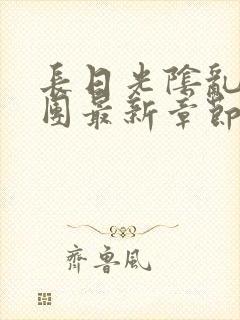 長日光陰亂
團最新章節
齊魯風